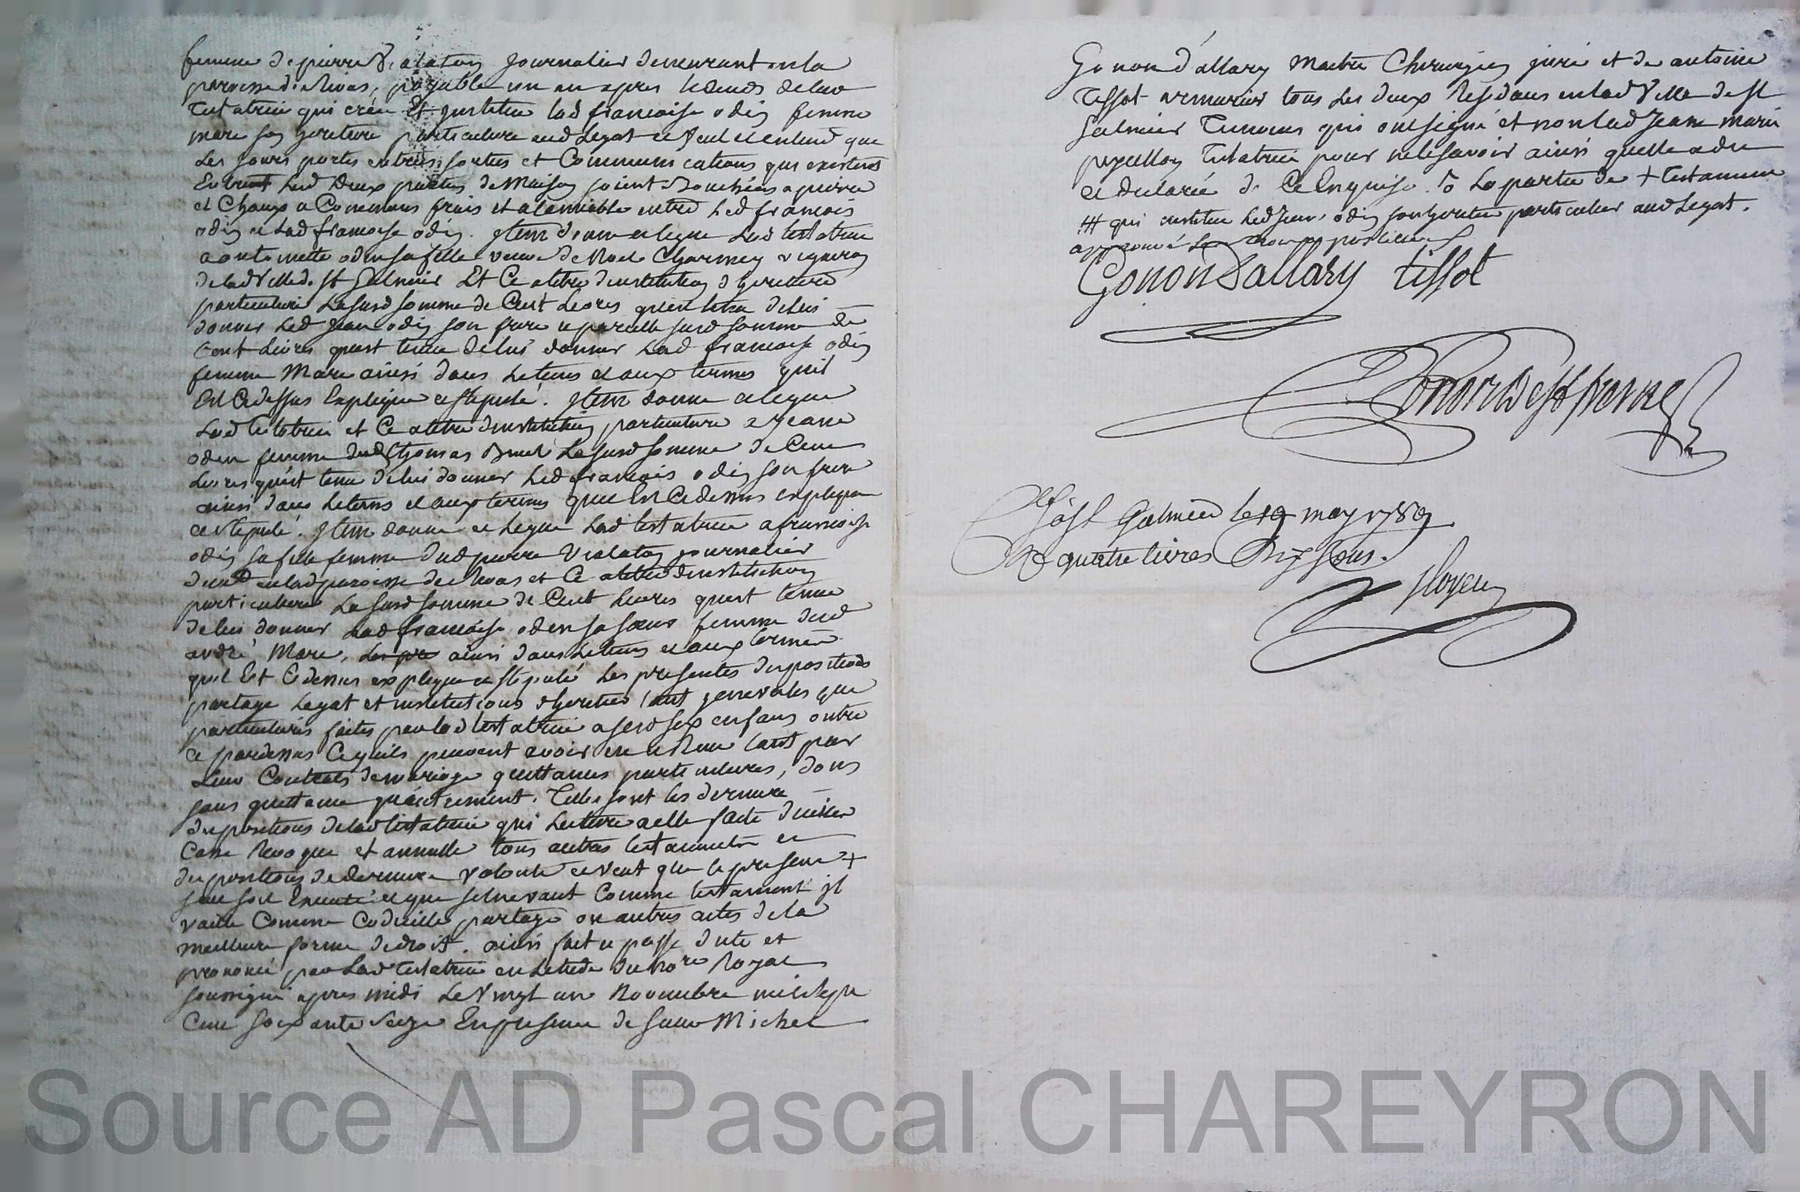 femme de pierre Vialaton Journalier demeurant en la
paroisse de Rivas, payable un an apres le deces de lad
testatrice qui crée Et Institue lad francoise odin femme
mare son heritiere particuliere aud Legat et Veut et entend que
Les Jours portes entrées sorties et Communications qui existeront
Entre Lesd Deux parties de Maison soient Bouchées a pierre
et Chaux a Communs frais et a lamiable entre Led francois
odin et Lad francoise odin. Item donne et legue Lad testatrice
a antoinette odin sa fille veuve de Noel Charmey vigneron
de lad Ville de St Galmier Et Ce a titre d'institution d'heritiere
particuliere La susd somme de Cent Livres qu'est tenu de lui
donner Led Jean odin son frere et pareille susd somme de
Cent Livres quest tenue de lui donner Lad francoise odin
femme Mare ainsi dans le tems et aux termes quil
Est Cidessus Expliqué et stipulé. Item donne et legue
Lad testatrice et Ce a titre d'institution particuliere a Jeane
odin femme dud Thomas Brunel La susd somme de Cent
Livres qu'est tenu de lui donner Led francois odin son frere
ainsi dans le tems et aux termes que Est Cidessus expliqué
et stipulé. Item donne et Legue Lad testatrice a francoise
odin sa fille femme dud pierre Vialaton Journalier
demt en lad paroisse de Rivas et Ce a titre d'institution
particuliere La susd somme de Cent Livres quest tenue
de lui donner Lad francoise odin sa soeur femme dud
andré Mare, ainsi dans le tems et aux termes
quil Est Cidessus expliqué et stipulé Les presentes dispositions
partage Legat et institutions d'heritier tant generales que
particulieres faites par lad testatrice a sesd six enfans outre
et pardessus Ce quils peuvent avoir eu et Recu tant par
Leur Contrats de mariage quittances particulieres, dons
sans quittance qu'autrement. Telles sont les dernieres
dispositions de lad testatrice qui Lecture a elle faite d'icelles
Casse Revoque et annulle tous autres testaments et
dispositions de derniere volonté et veut que le present +
sou soit Executé et que sil ne vaut Comme testament il
vaille Comme Codicille partage ou autres actes de la
meilleure forme de droit. ainsi fait et passé dicté et
prononcé par Lad Testatrice en Letude du nore Royal
soussigné apres midi Le Vingt un Novembre mil sept
Cent soixante seize En presence de sieur Michel
Gonon d'allary Maitre Chirurgien juré et de antoine
Tissot armurier tous les deux Residans en lad Ville de St
Galmier Temoins qui ont signé et non lad Jeane Marie
peycellon Testatrice pour ne le savoir ainsi quelle a dit
et declaré de Ce Enquise. + testament
+++ qui institue Led Jean odin son heritier particulier aud Legat.
approuvé
Gonon Dallary Tissot
Gonon De St fresne
a St Galmier le 19 may 1789
R quatre livres Dix sous.